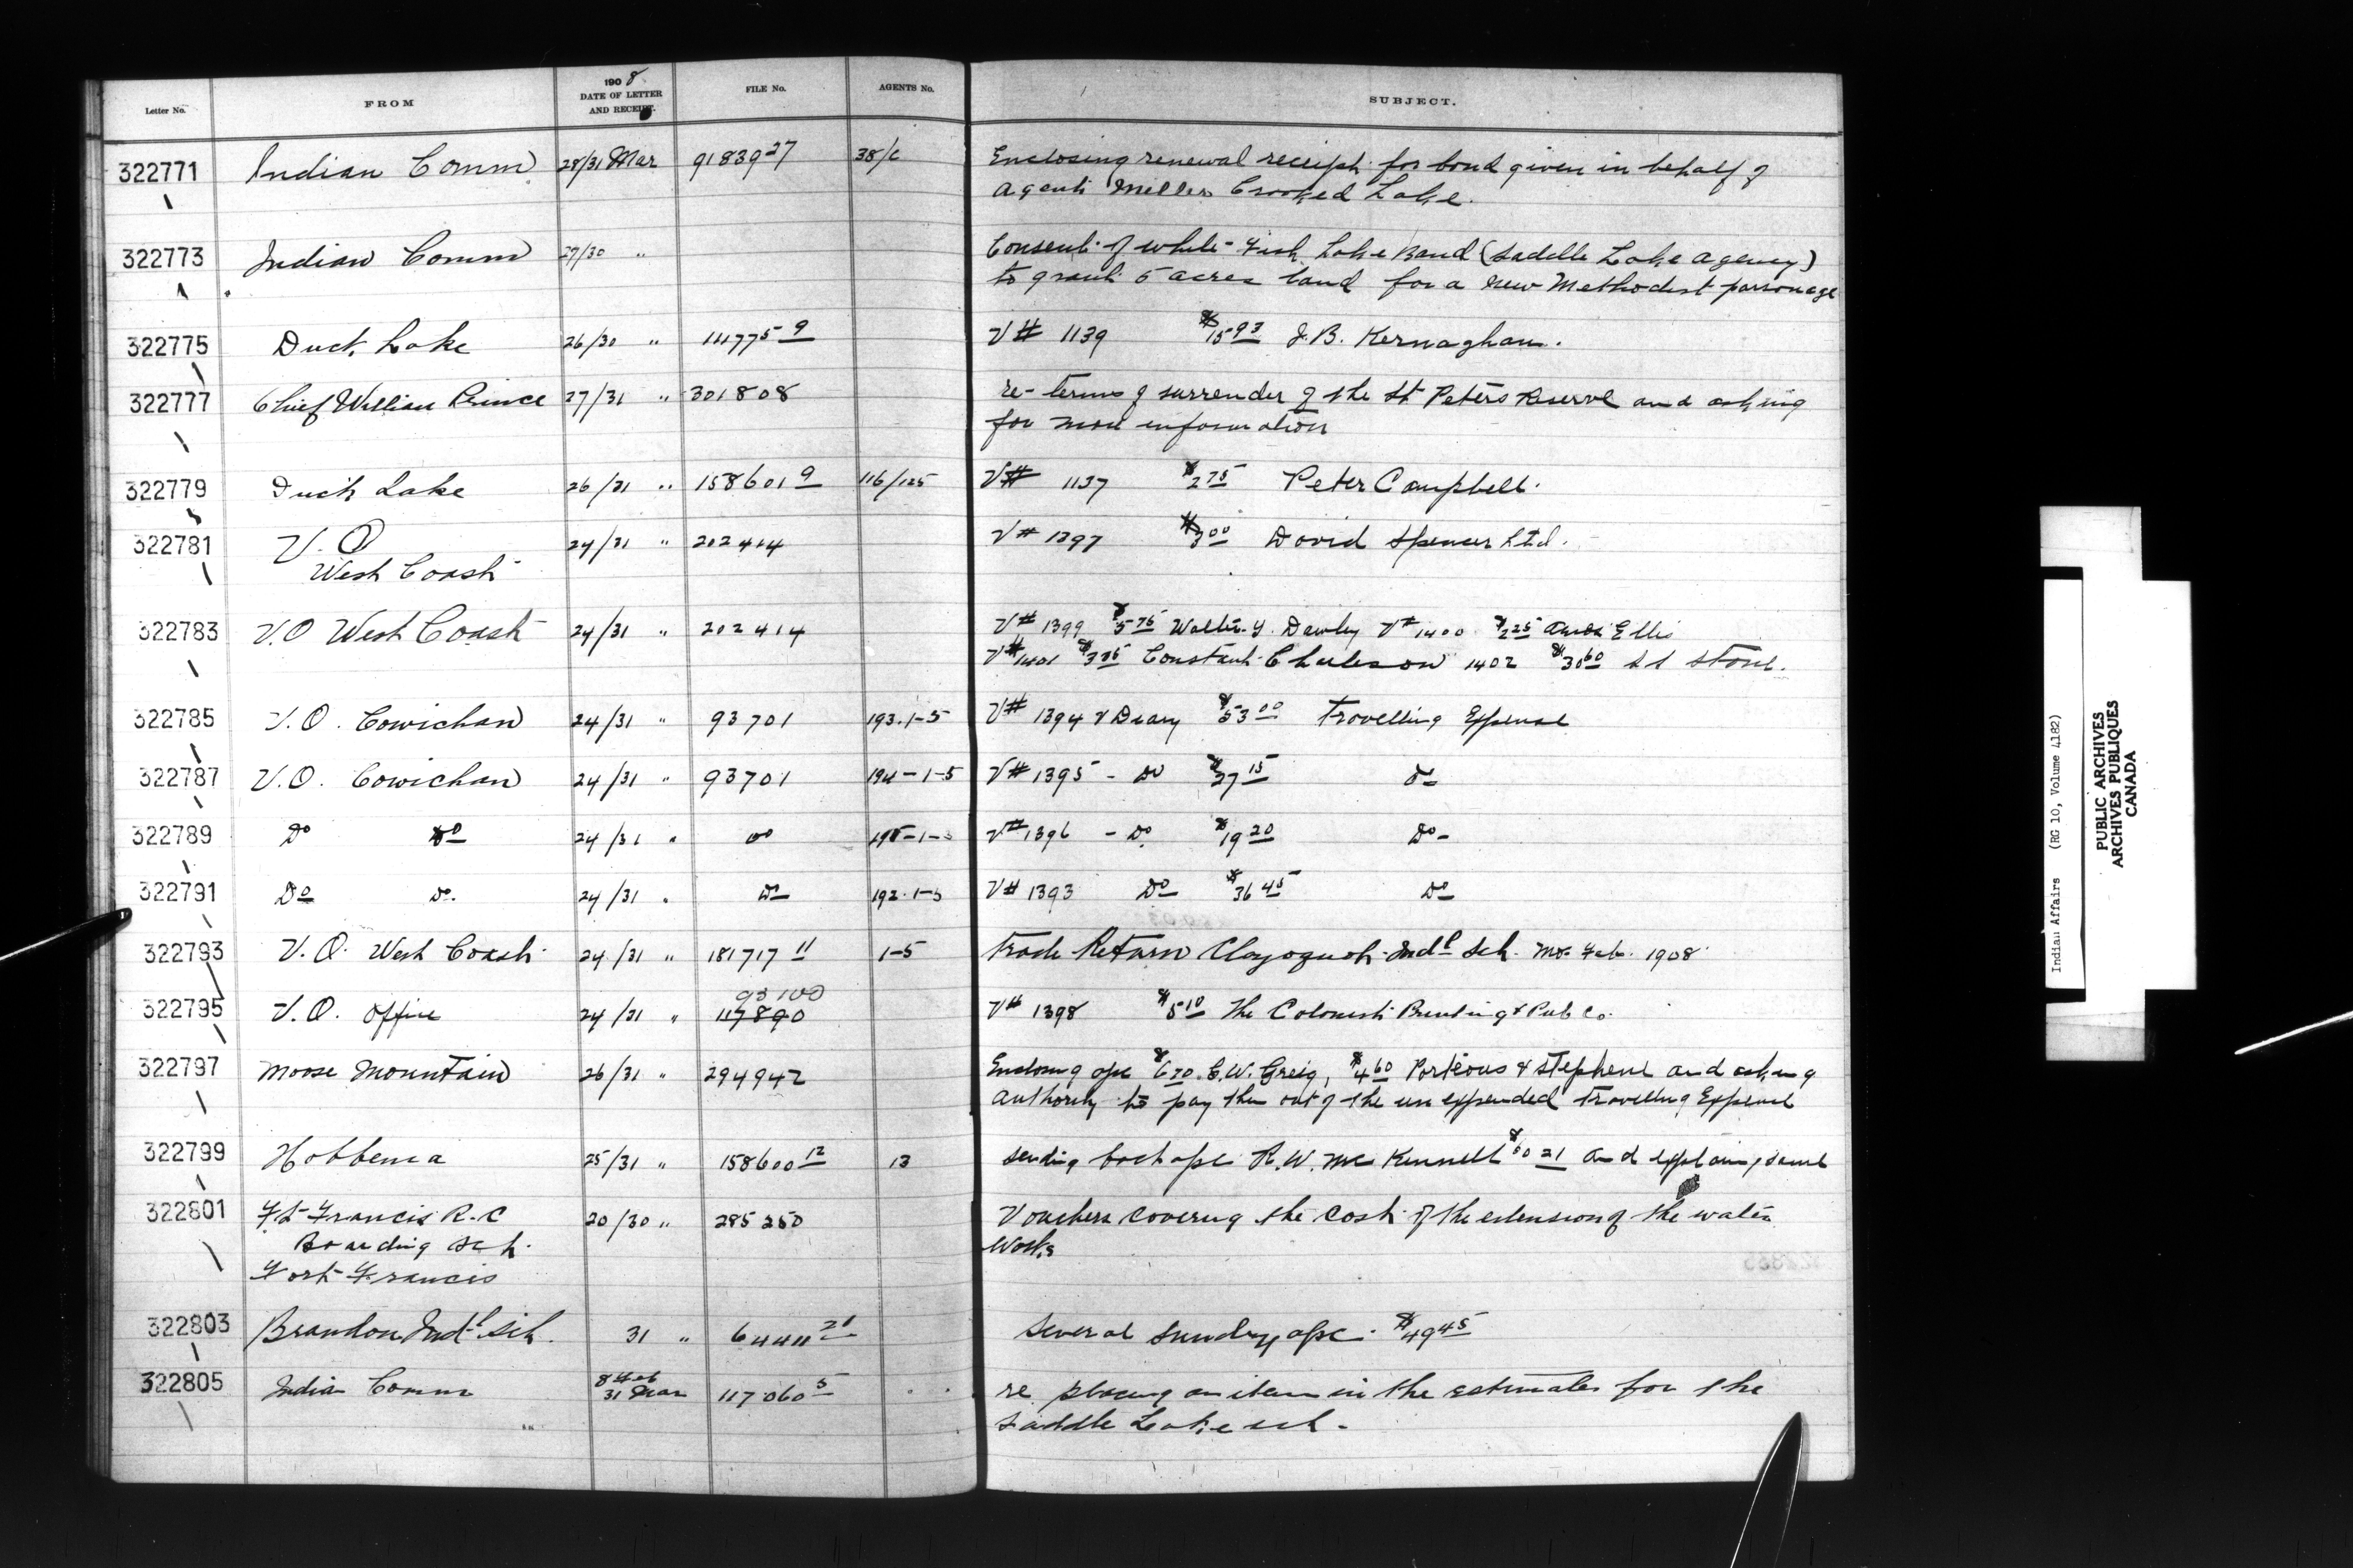 Letter No. FROM 1908 DATE OF LETTER AND RECEIPT. FILE No. AGENTS No. SUBJECT.
322771 Indian Comm 28/31 Mar 91839 27 38/c Enclosing renewal receipt for bond given in behalf of
Agent Miller Crooked Lake.
322773 Indian Comm 27/30 " Consent of White Fish Lake Band (Saddle Lake Agency)
to grant 5 acres land for a new Methodist parsonage
322775 Duck Lake 26/30 " 114775 9 V# 1139 $15 93 J.B. Kernaghan.
322777 Chief William Prince 27/31 " 301808 re- terms of surrender of the St Peters Reserve and asking
for more information
322779 Duck Lake 26/31 " 158601 9 116/125 V# 1137 $2 75 Peter Campbell.
322781 V.O 24/31 " 202414 V# 1397 $3 00 David Spencer Ltd.
West Coast
322783 V.O West Coast 24/31 " 202414 V# 1399 $5 75 Walter Dawley V# 1400 $2 25 Ellis
V# 1401 Constant Charleson 1402 $30 60 Stone.
322785 V.O. Cowichan 24/31 " 93701 193.1-5 V# 1394 & Diary $53 00 Travelling Expense
322787 V.O. Cowichan 24/31 " 93701 194-1-5 V# 1395 - Do $27 15 Do
322789 Do Do 24/31 " Do 195-1-5 V# 1396 - Do $19 20 Do-
322791 Do Do. 24/31 " Do 192.1-5 V# 1393 Do $36 45 Do
322793 V.O. West Coast 24/31 " 181717 11 1-5 Trade Return Clayoquot Indl Sch. Mo. Feb. 1908
93100
322795 V.O. Office 24/31 " 117890 V# 1398 $5 10 The Colonist Printing & Pub Co.
322797 Moose Mountain 26/31 " 294942 Enclosing a/c $6 70 C.W. Greig, $4 60 Porteous & Stephens and asking
authority to pay them out of the unexpended travelling Expense
322799 Hobbema 25/31 " 158600 12 13 Sending back a/c R.W. McKinnell $60 21 and explaining same
322801 Ft Francis R.C 20/30 " 285250 Vouchers covering the cost of the extension of the water
Boarding Sch. Works
Fort Francis
322803 Brandon Indl Sch. 31 " 64411 21 Several Sundry a/cs. $49 45
322805 Indian Comm 8 Feb 31 Mar 117060 5 re placing an item in the estimates for the
Saddle Lake sch-
Indian Affairs (RG 10, Volume 4182)
PUBLIC ARCHIVES
ARCHIVES PUBLIQUES
CANADA